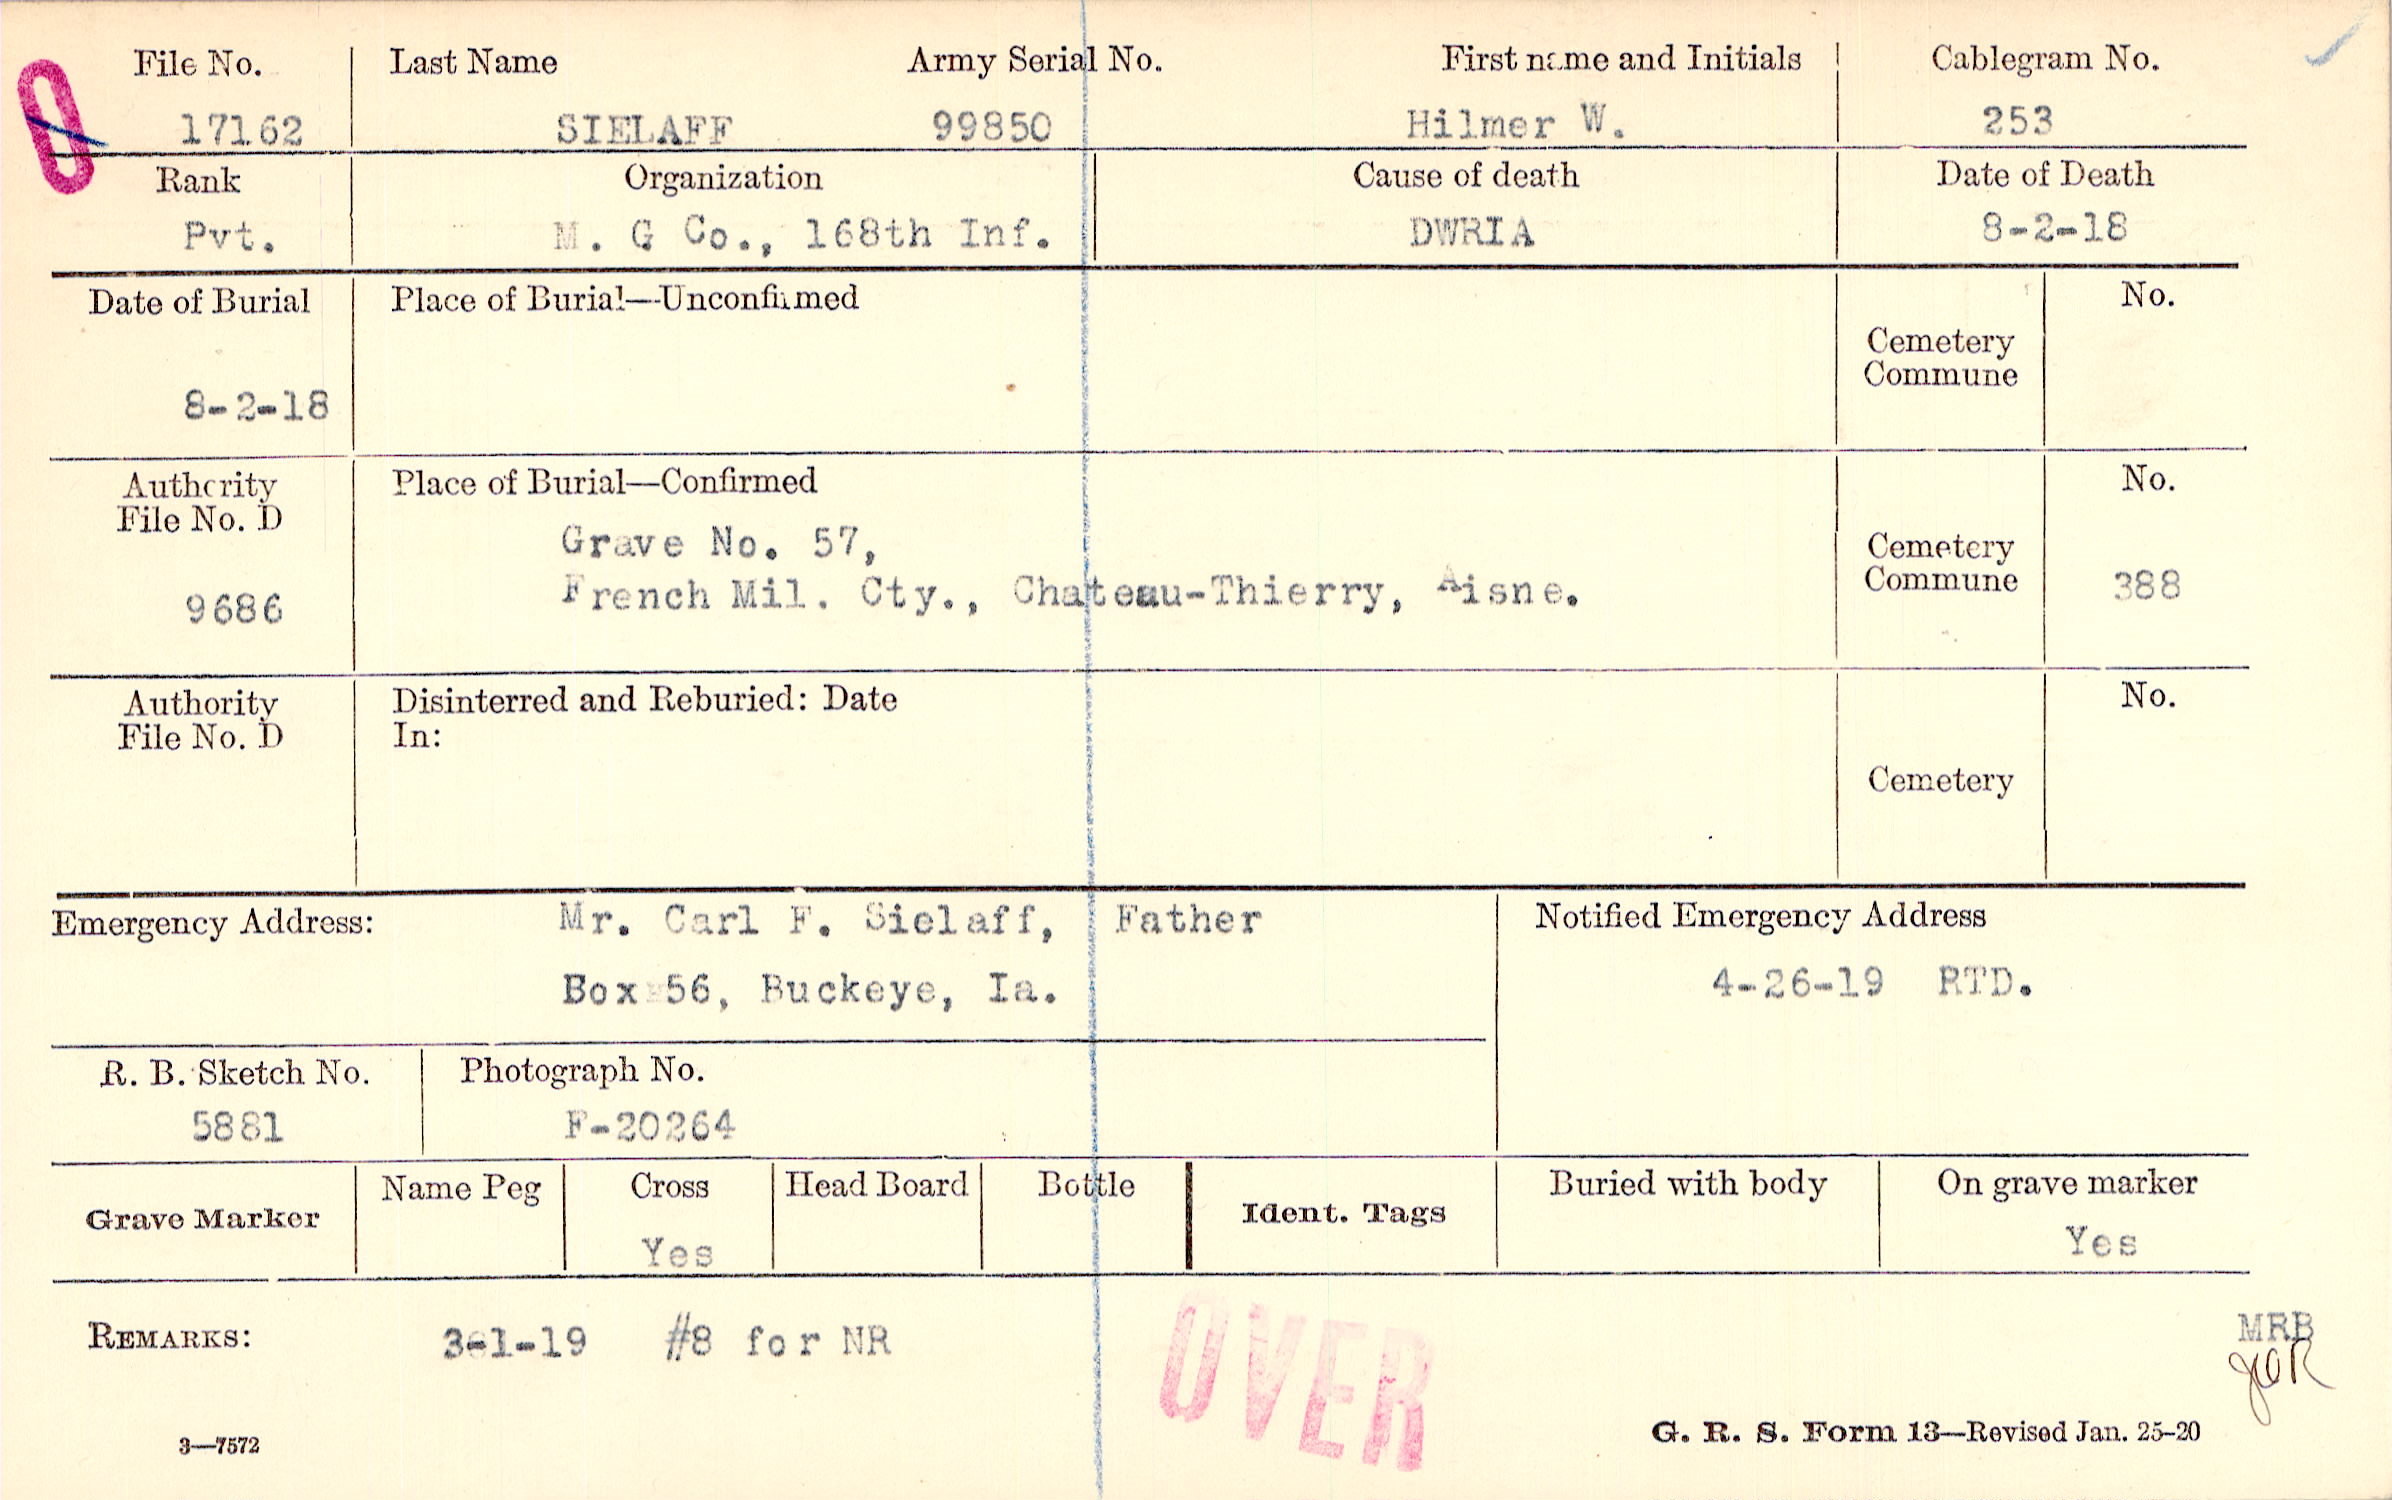 File No. Last Name Army Serial No. First name and Initials Cablegram No.
17162 SIELAFF 99850 Hilmer W. 253
Rank Organization Cause of death Date of Death
Pvt. M. G Co., 168th Inf. DWRIA 8-2-18
Date of Burial Place of Burial—Unconfirmed No.
Cemetery
Commune
8-2-18
Authority Place of Burial—Confirmed No.
File No. D
Grave No. 57, Cemetery
9686 French Mil. Cty., Chateau-Thierry, Aisne. Commune 388
Authority Disinterred and Reburied: Date No.
File No. D In:
Cemetery
Emergency Address: Mr. Carl F. Sielaff, Father Notified Emergency Address
Box 56, Buckeye, Ia. 4-26-19 RTD.
R. B. Sketch No. Photograph No.
5881 F-20264
Grave Marker Name Peg Cross Head Board Bottle Ident. Tags Buried with body On grave marker
Yes Yes
REMARKS: 3-1-19 #8 for NR OVER MRB
3—7572 G. R. S. Form 13—Revised Jan. 25-20